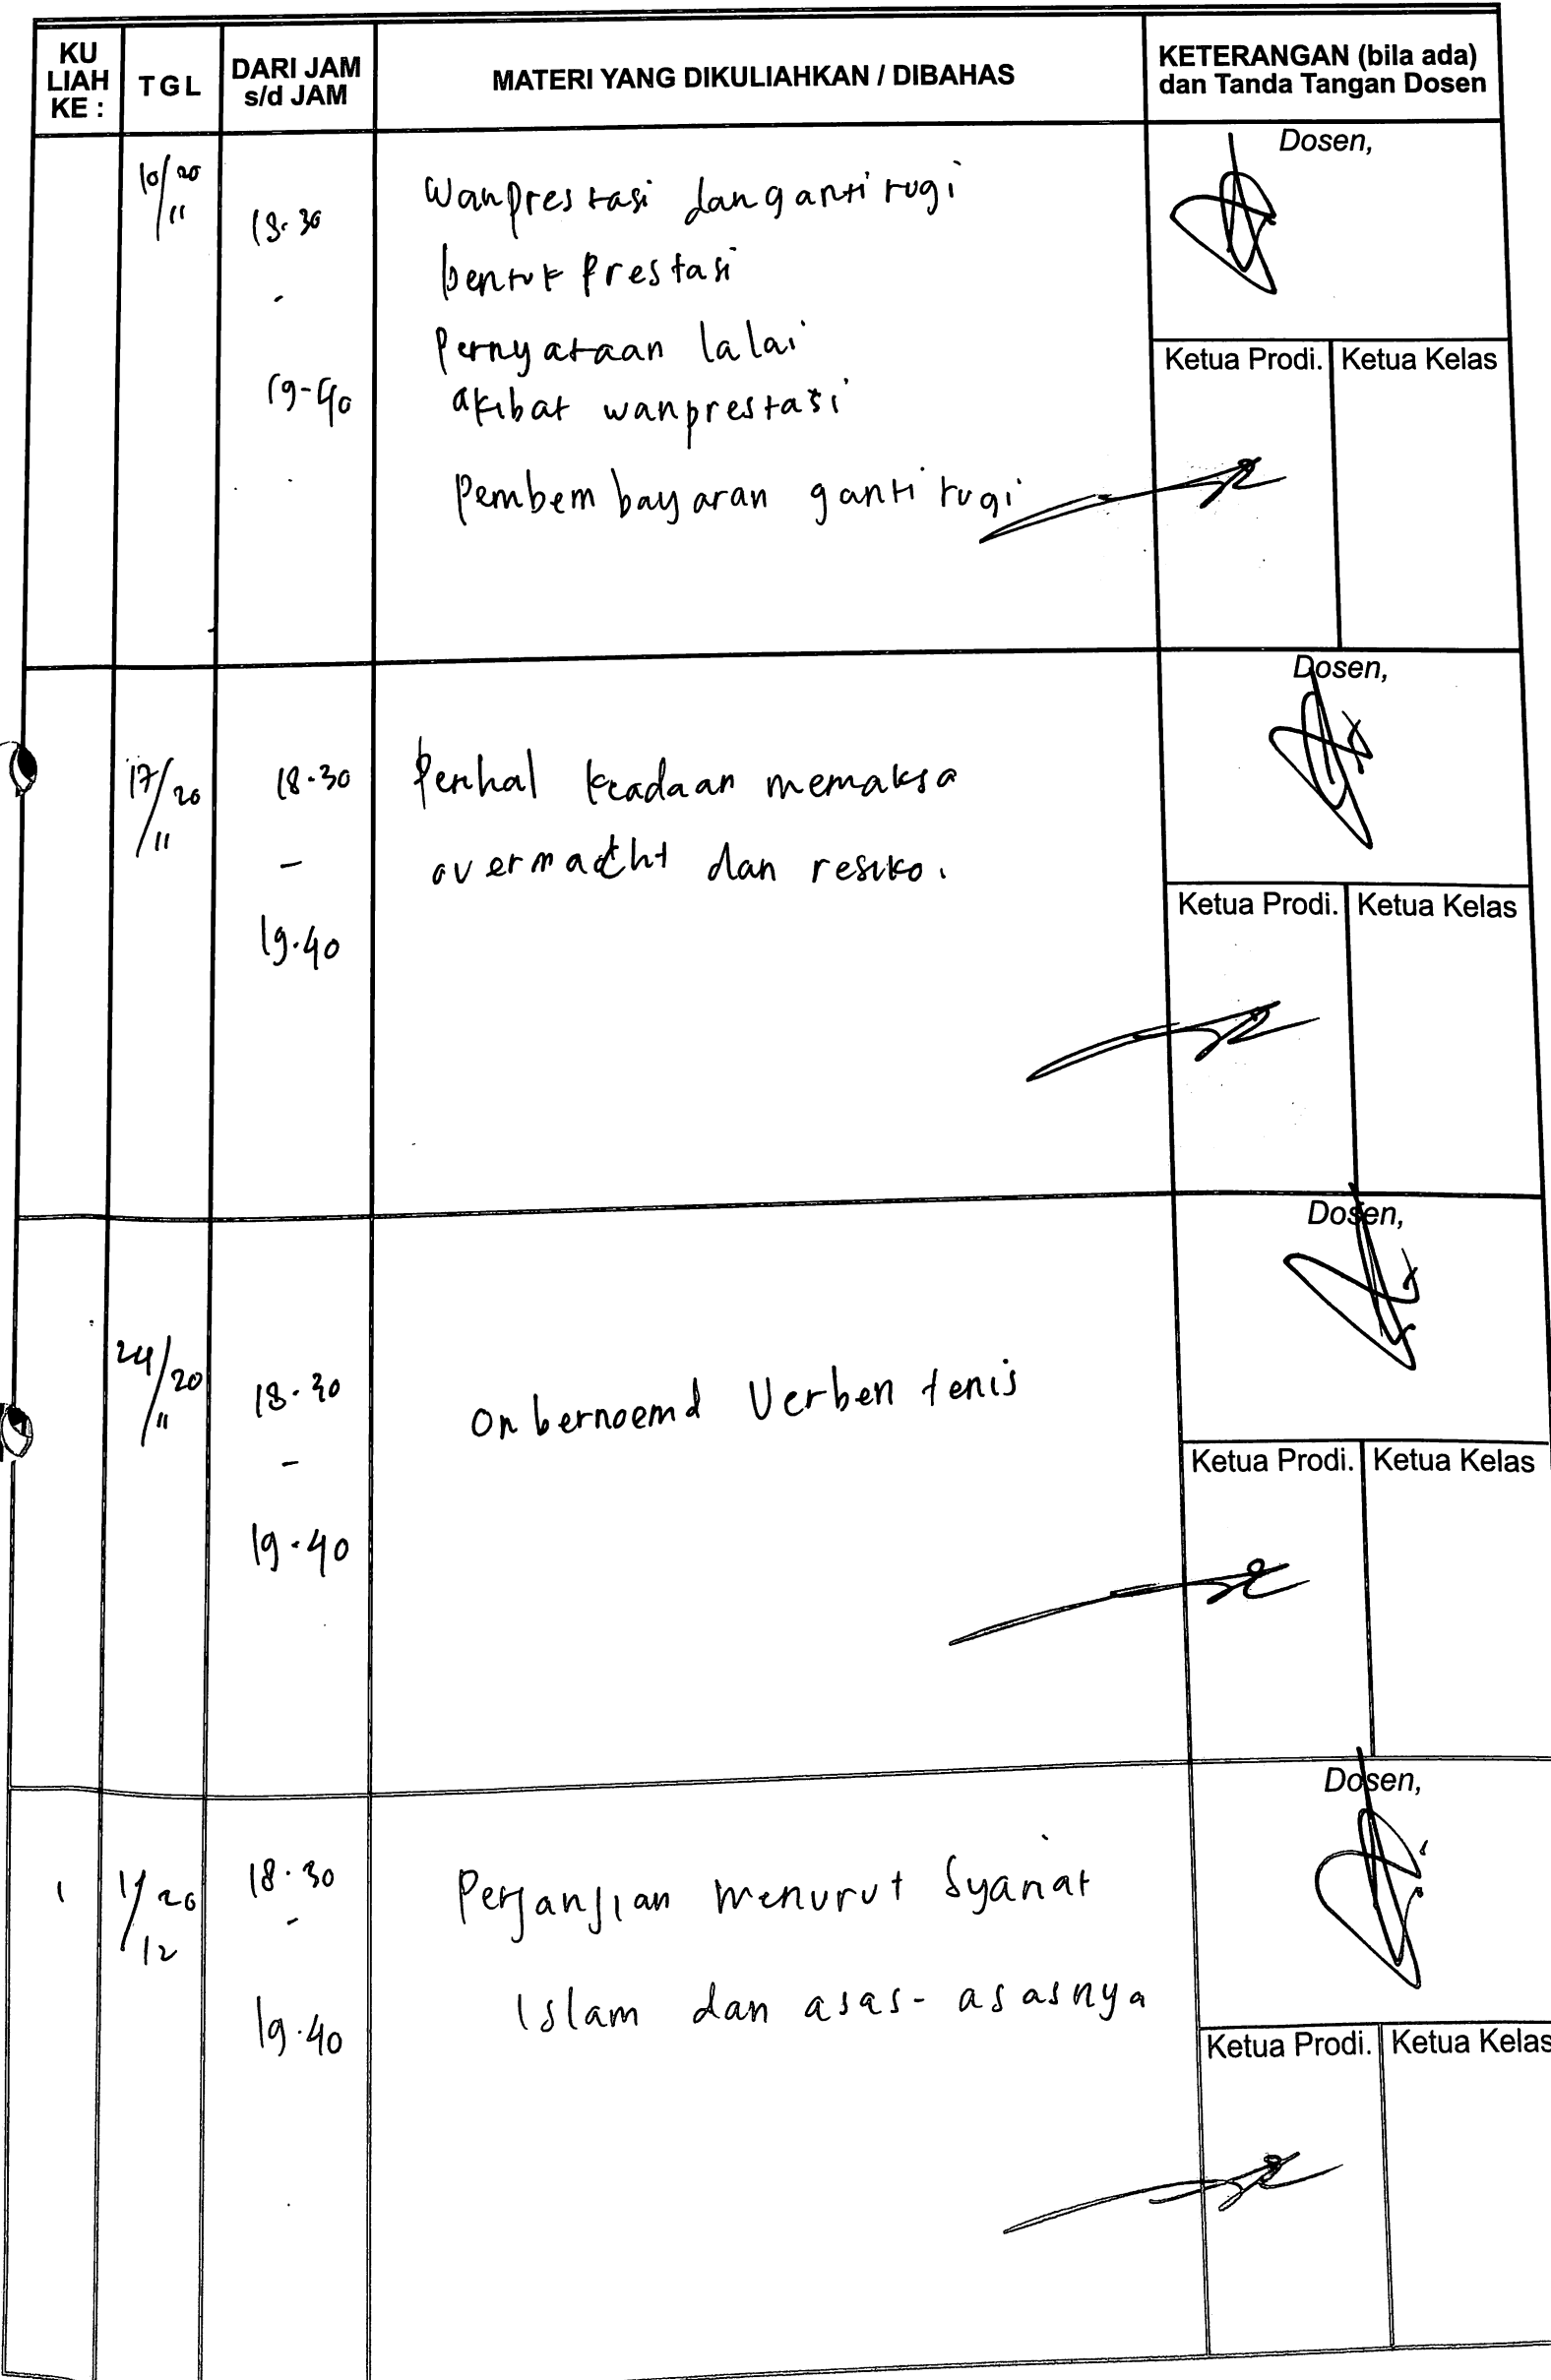 KU LIAH KE : TGL DARI JAM s/d JAM MATERI YANG DIKULIAHKAN / DIBAHAS KETERANGAN (bila ada) dan Tanda Tangan Dosen
Dosen,
10/20
11
18.30
-
19-40
Wanprestasi dan ganti rugi
bentuk Prestasi
Pernyataan lalai
akibat wanprestasi
Pembembayaran ganti rugi
Ketua Prodi. Ketua Kelas
Dosen,
17/20
11
18.30
-
19.40
Perihal keadaan memaksa
overmacht dan resiko.
Ketua Prodi. Ketua Kelas
Dosen,
24/20
11
18.30
-
19.40
Onbernoemd Verbentenis
Ketua Prodi. Ketua Kelas
Dosen,
1/20
12
18.30
-
19.40
Perjanjian menurut Syariat
Islam dan asas-asasnya
Ketua Prodi. Ketua Kelas